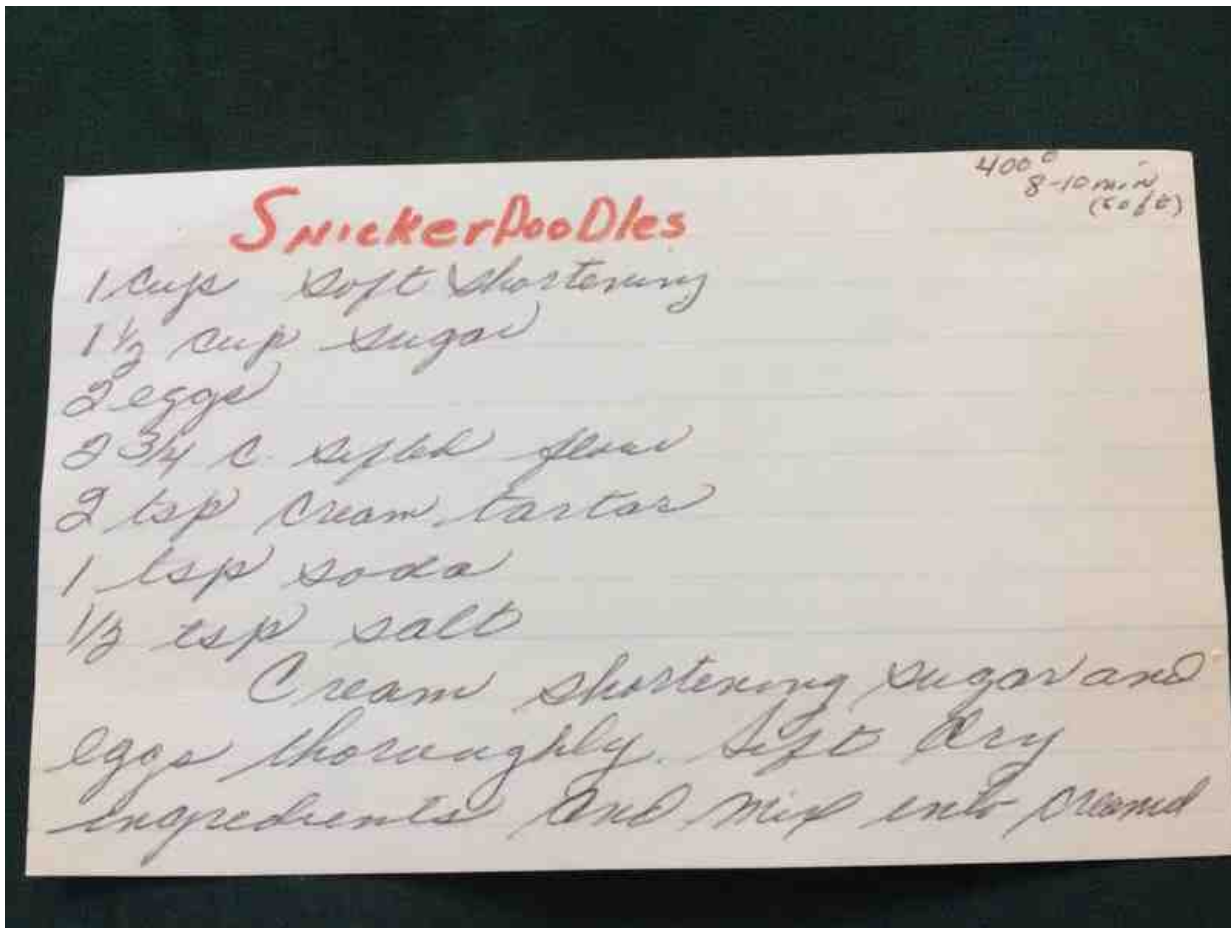 400°
8-10 min
(soft)
SNickerDooDles
1 cup soft shortening
1 1/2 cup sugar
2 eggs
2 3/4 c. sifted flour
2 tsp cream tartar
1 tsp soda
1/2 tsp salt
Cream shortening sugar and
eggs thoroughly. Sift dry
ingredients and mix into creamed